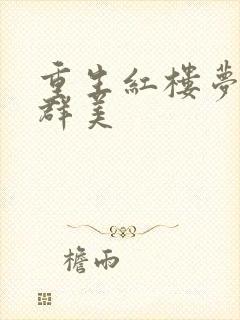 重生紅樓夢
群美
檐雨